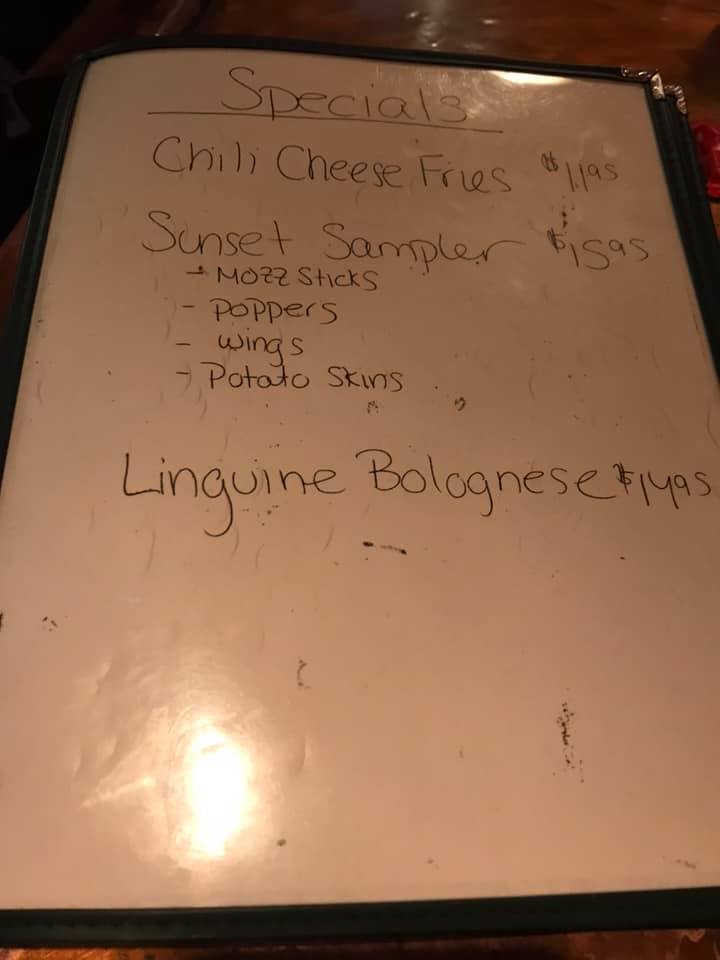 Specials
Chili Cheese Fries $11.95
Sunset Sampler $15.95
- Mozz Sticks
- Poppers
- Wings
- Potato Skins
Linguine Bolognese $14.95